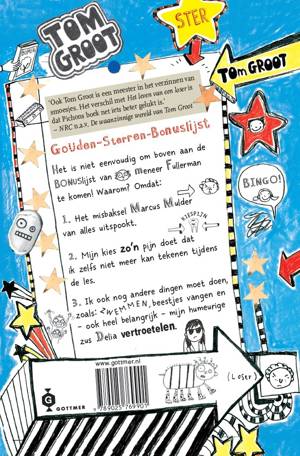 TOM
GROOT
STER
TOM GROOT
'Ook Tom Groot is een meester in het verzinnen van
smoesjes. Het verschil met Het leven van een loser is
dat Pichons boek net iets beter gelukt is.'
– NRC n.a.v. De waanzinnige wereld van Tom Groot
Gouden-Sterren-Bonuslijst
Het is niet eenvoudig om boven aan de
BONUSlijst van meneer Fullerman
te komen! Waarom? Omdat:
BINGO!
1. Het misbaksel Marcus Mulder
van alles uitspookt.
KIESPIJN
2. Mijn kies zo'n pijn doet dat
ik zelfs niet meer kan tekenen tijdens
de les.
3. Ik ook nog andere dingen moet doen,
zoals: ZWEMMEN, beestjes vangen en
- ook heel belangrijk - mijn humeurige
zus Delia vertroetelen.
www.gottmer.nl
G
GOTTMER
9 789025 769901
(Loser)